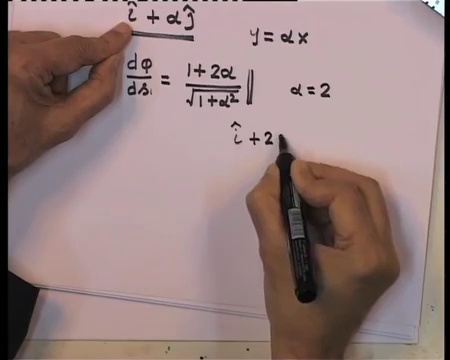 î + αĵ
y = αx
dφ/ds₁ = (1+2α)/√(1+α²)
α = 2
î + 2